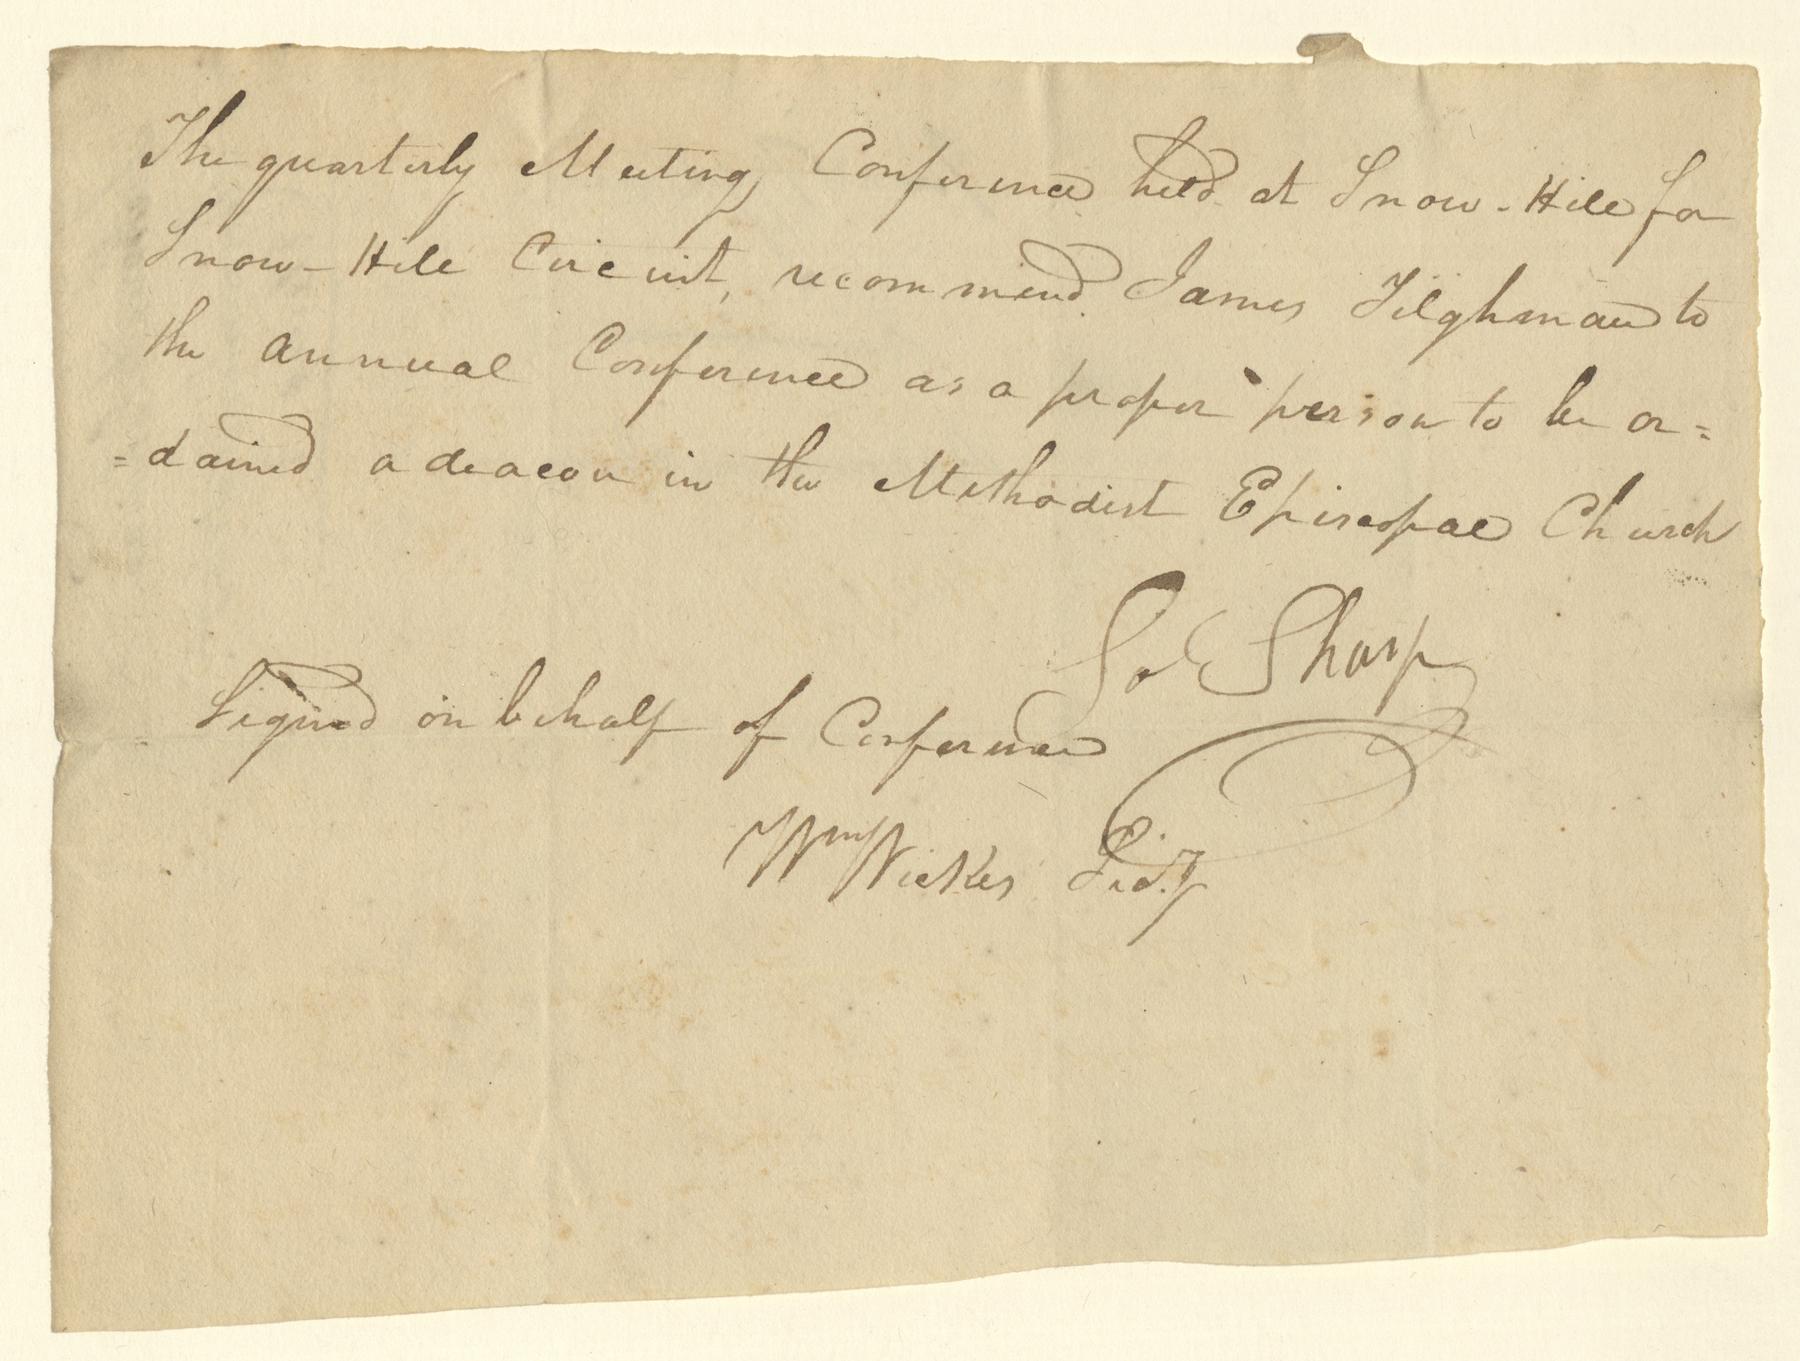 The quarterly Meeting Conference held at Snow-Hill for
Snow-Hill Circuit, recommend James Tilghman to
the annual Conference as a proper person to be or=
=dained a deacon in the Methodist Episcopal Church
Sol Sharp
Signed on behalf of Conference
Wm Wickes Sec.y